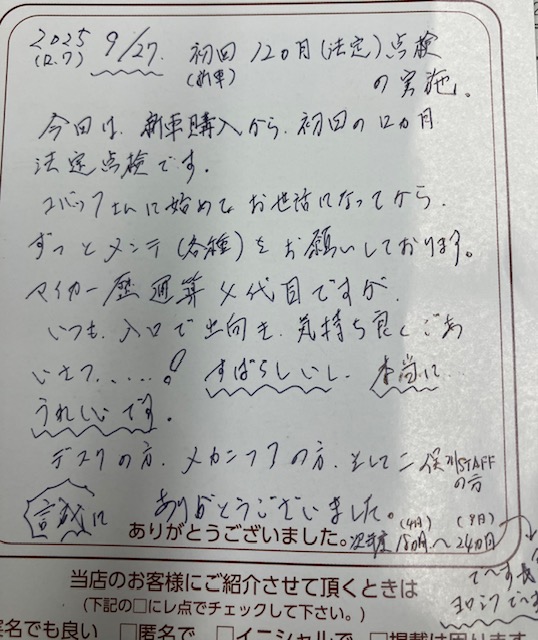 2025 9/27. 初回 12ヵ月(法定)点検
(R.7) (新車) の実施。
今回は、新車購入から、初回の12ヵ月
法定点検です。
コバックさんに始めて お世話になってから、
ずっとメンテ(各種)をお願いしております。
マイカー歴 通算 4代目ですが、
いつも、入口で出向き、気持ち良くごあ
いさつ.....! すばらしいし、本当に…
うれしいです。
デスクの方、メカニックの方、そして STAFF
の方
誠に ありがとうございました。
ありがとうございました。
(4月) (9月)
18ヵ月、~24ヵ月
で~す
ヨロシクで~す
当店のお客様にご紹介させて頂くときは
(下記の□にレ点でチェックして下さい。)
実名でも良い □匿名で □イニシャルで □掲載は困ります